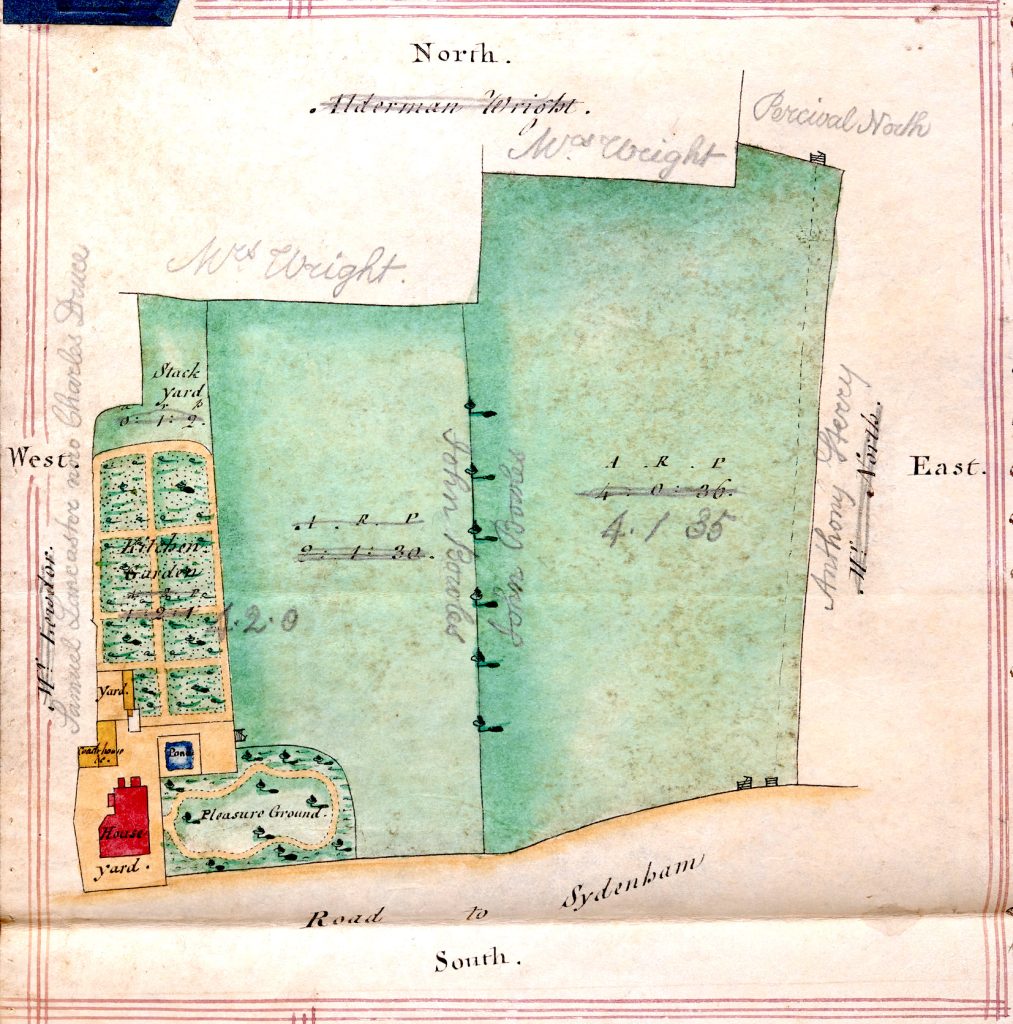 North.
Alderman Wright.
Percival North
Mrs Wright
Mrs Wright.
Stack
yard
a r p
0: 1: 2.
West.
East.
A . R . P
4 : 0 : 36.
4. 1 35
A . R . P
2: 1: 30.
John Bowles
John Bowles
Anthony Sterry
Mr. North.
Kitchen
Garden
1: 2: 1
1. 2. 0
Samuel Lancaster now Charles Druce
Yard.
Coach house
Pond
Pleasure Ground.
House
yard.
Road to Sydenham
South.